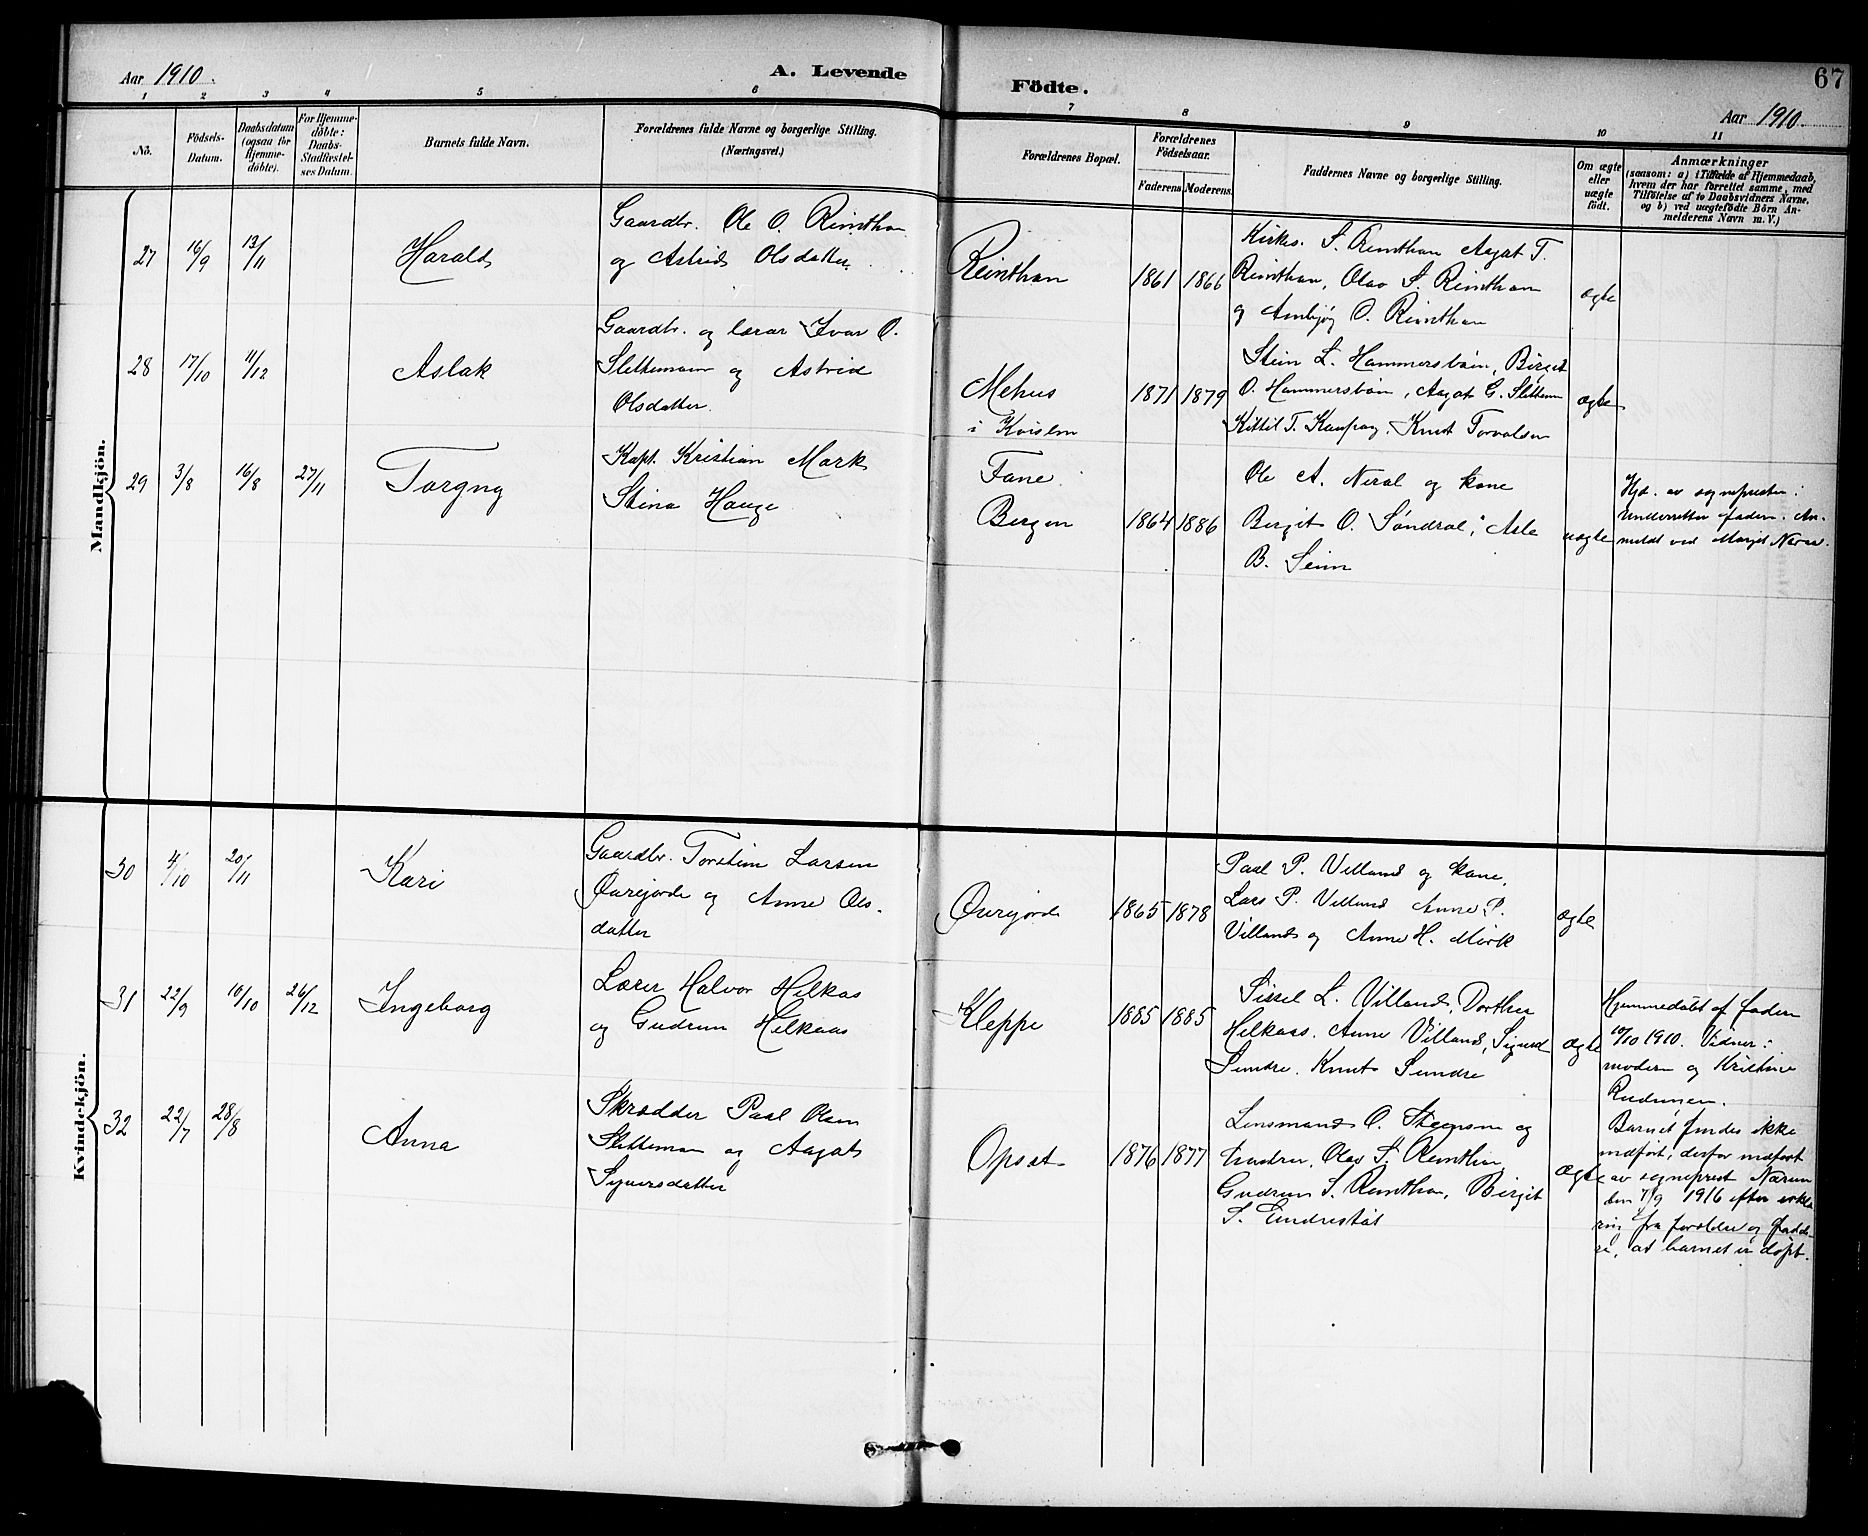 67
Aar 1910.
A. Levende
Födte.
Aar 1910
1 2 3 4 5 6 7 8 9 10 11
No.
Födsels-
Datum.
Daabsdatum
(ogsaa for
Hjemme-
döbte).
For Hjemme-
döbte:
Daabs-
Stadfæstel-
ses Datum.
Barnets fulde Navn.
Forældrenes fulde Navne og borgerlige Stilling.
(Næringsvei.)
Forældrenes Bopæl.
Forældrenes
Födselsaar.
Faderens. Moderens.
Faddernes Navne og borgerlige Stilling.
Om ægte
eller
uægte
födt.
Anmærkninger
(saasom: a) i Tilfælde af Hjemmedaab,
hvem der har forrettet samme, med
Tilföielse af to Daabsvidners Navne,
og b) ved uægtefödte Börn An-
melderens Navn m. V.)
Mandkjön.
27 16/9 13/11 Harald
Gaardbr. Ole O. Reinthon
og Astrid Olsdatter.
Reinthon 1861 1866
Kirkes. S. Reinthon Aagot T.
Reinthon, Olav S. Reinthon
og Ambjög O. Reinthon
ægte
28 17/10 11/12 Aslak
Gaardbr. og lærar Ivar O.
Slettemoen og Astrid
Olsdatter.
Mehus
i Kvislen
1871 1879
Stein L. Hammersbøen, Birgit
O. Hammersbøen, Aagot G. Slettem
Kittil T. Kaupang. Knut Torvalsen
ægte
29 3/8 16/8 27/11 Torgny
Kapt. Kristian Mork
Stina Hauge
Fane
Bergen
1864 1886
Ole A. Neral og kone
Birgit O. Søndral, Asle
B. Seim
uægte
Hjd. av sognepresten:
Underretter faderen. An-
meldt ved Margit Neral.
Kvindekjön.
30 4/10 20/11 Kari
Gaardbr. Torstein Larsen
Øvrejorde og Anne Ols-
datter
Øvrejorde 1865 1878
Paal P. Villand og kone,
Lars P. Villand Anne P.
Villand og Anne H. Mørk
ægte
31 22/9 10/10 26/12 Ingeborg
Lærer Halvor Helkas
og Gudrun Helkaas
Kleppe 1885 1885
Sissel L. Villand, Dorthea
Helkaas. Anne Villand, Sigurd
Sundre. Knut Sundre
ægte
Hjemmedøbt af faderen
10/10 1910. Vidner:
moderen og Kristine
Rudningen.
32 22/7 28/8 Anna
Skrædder Paal Olsen
Slettemoen og Aagot
Syversdatter
Opsat 1876 1877
Lensmand O. Steensen og
hustru, Olav S. Reinthon
Gudrun S. Reinthon, Birgit
S. Eindrestøl
ægte
Barnet findes ikke
indført, derfor indført
av sogneprest Nærum
den 7/9 1916 efter erklæ
ring fra forældre og fadde-
re, at barnet er døpt.